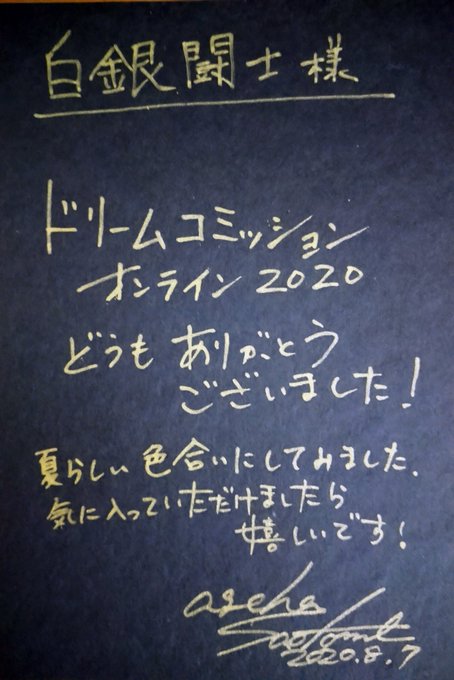 白銀闘士様
ドリームコミッション
オンライン2020
どうもありがとう
ございました!
夏らしい色合いにしてみました.
気に入っていただけましたら
嬉しいです!
2020.8.7